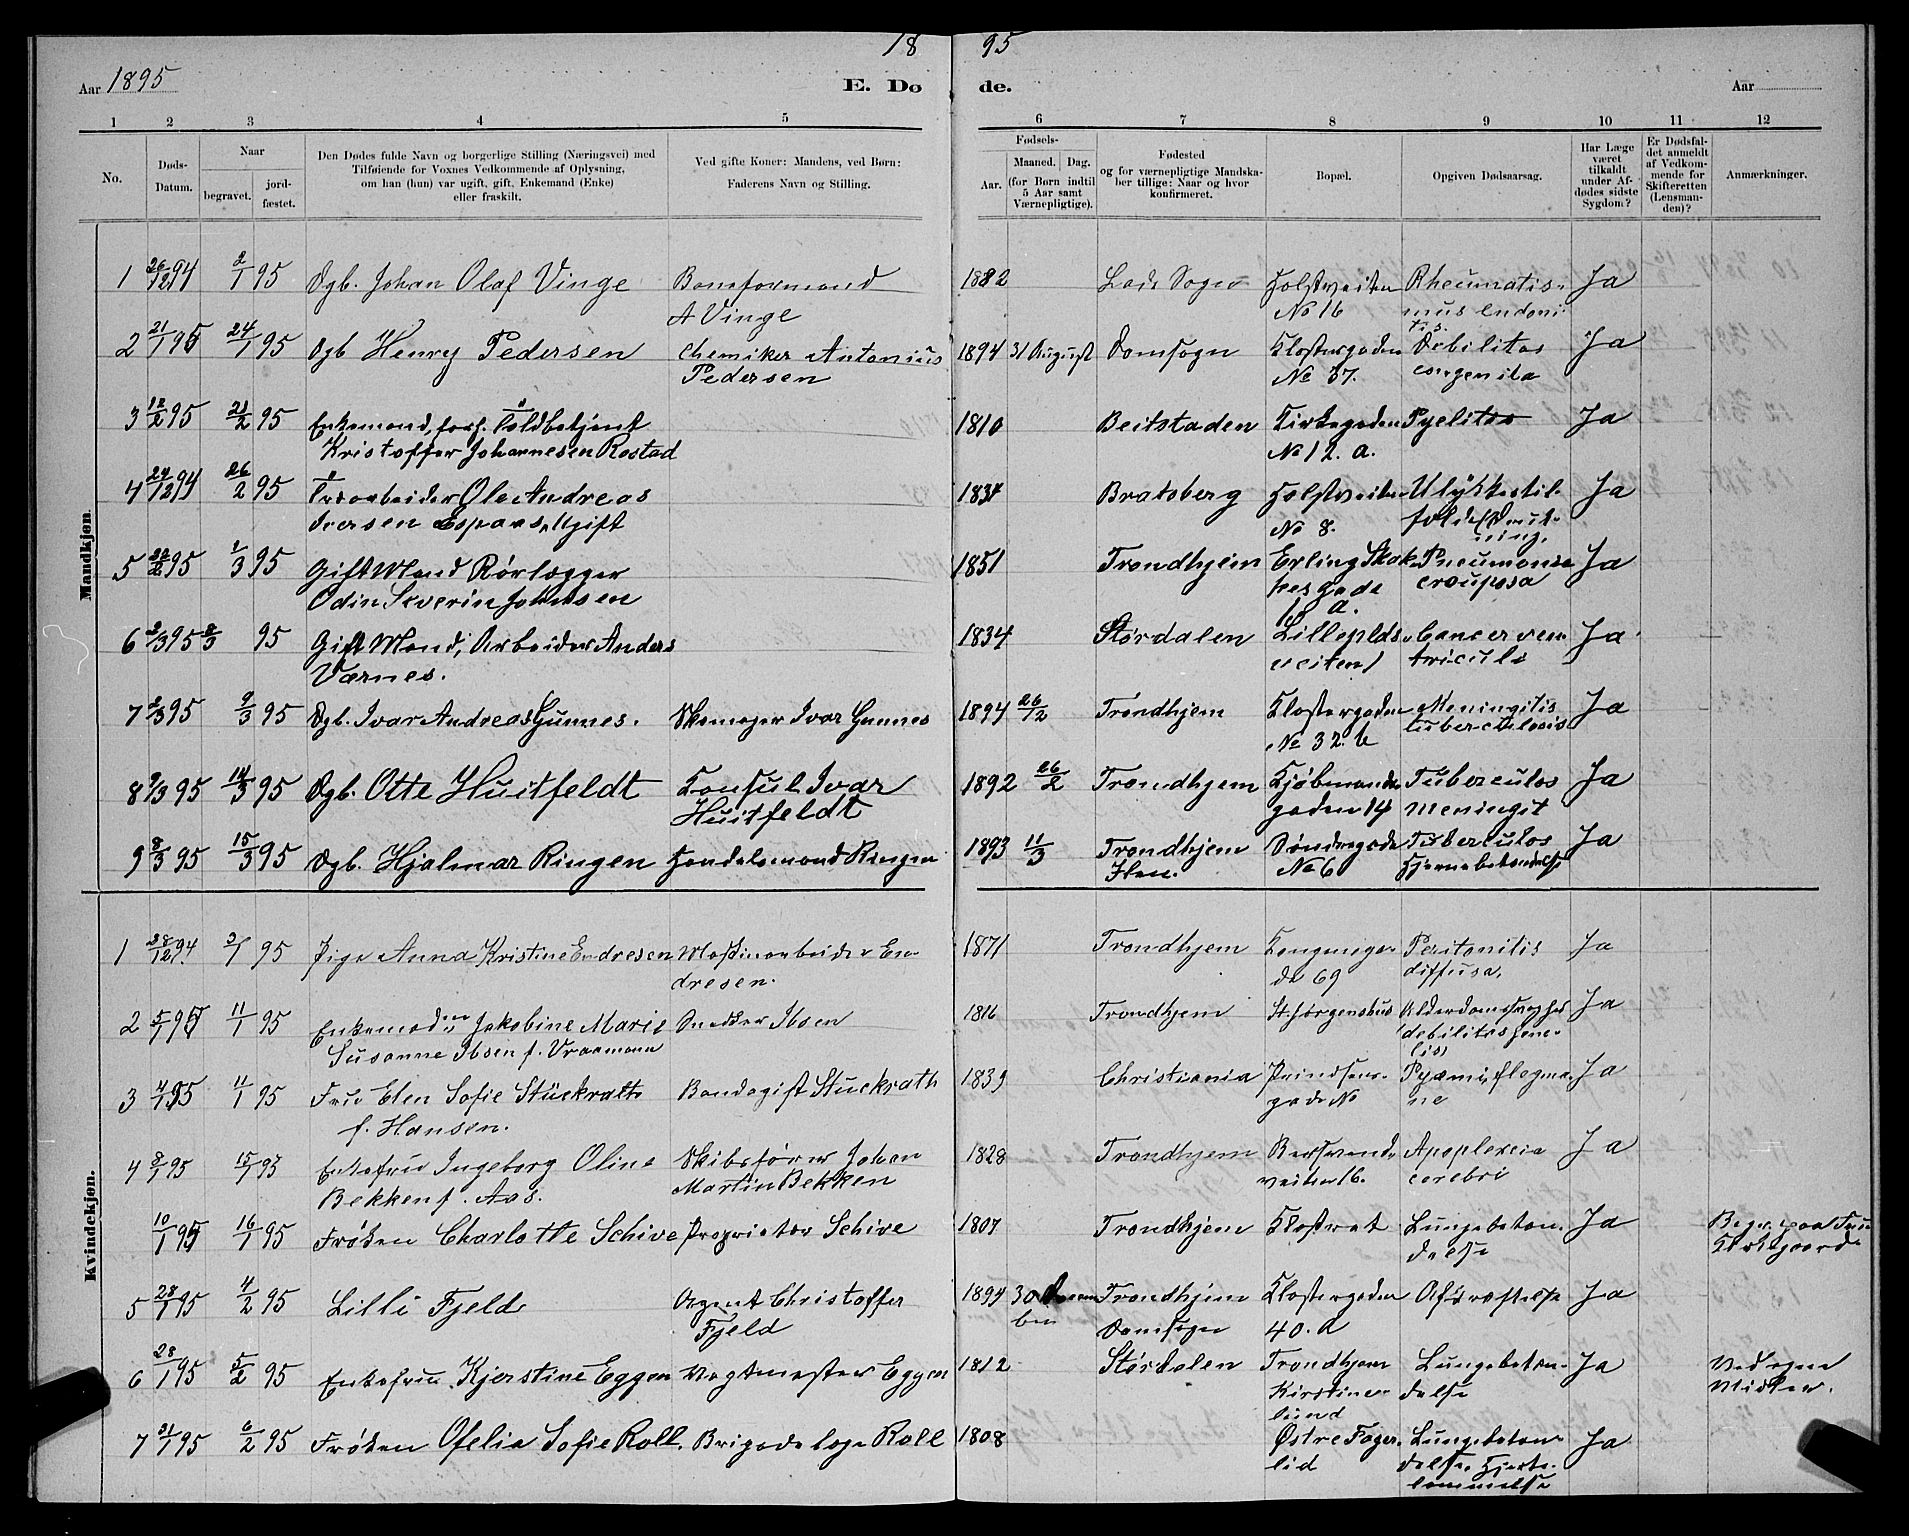 18 95
Aar 1895 E. Dø de. Aar
1 2 3 4 5 6 7 8 9 10 11 12
No. Døds-Datum. Naar begravet. jordfæstet. Den Dødes fulde Navn og borgerlige Stilling (Næringsvei) med Tilføiende for Voxnes Vedkommende af Oplysning, om han (hun) var ugift, gift, Enkemand (Enke) eller fraskilt. Ved gifte Koner: Mandens, ved Børn: Faderens Navn og Stilling. Fødsels- Aar. Maaned. Dag. (for Børn indtil 5 Aar samt Værnepligtige). Fødested og for værnepligtige Mandskaber tillige: Naar og hvor konfirmeret. Bopæl. Opgiven Dødsaarsag. Har Læge været tilkaldt under Afdødes sidste Sygdom? Er Dødsfaldet anmeldt af Vedkommende for Skifteretten (Lensmanden)? Anmærkninger.
Mandkjøn.
1 26/12 94 2/1 95 Dgb. Johan Olaf Vinge Bomformand 1882 Lade Sogn Holstveiten Rheumatis- Ja
A Vinge No 16 mus endoni-
tis.
2 21/1 95 24/1 95 Dgb Henry Pedersen Chemiker Antonius 1894 31 August Domsogn Klostergaden Debilitas Ja
Pedersen No 37. congenita
3 12/2 95 21/2 95 Enkemand, forh. Toldbetjent 1810 Beitstaden Kirkegaden Pyelitis Ja
Kristoffer Johannesen Rostad No 12. a.
4 24/12 94 26/2 95 Ole Andreas 1834 Bratsberg Holstveiten Ulykkestil- Ja
Iversen Espaas, Ugift No 8. fælde (Drukning.
5 22/2 95 1/3 95 Gift Mand Rørlægger 1851 Trondhjem Erling Skak- Pneumonia Ja
Odin Severin Johnsen kesgade crouposa
10 a.
6 2/3 95 8/3 95 Gift Mand, Arbeider Anders 1834 Størdalen Cancer ven- Ja
Værnes. veiten 1 triculi
7 2/3 95 9/3 95 Dgb. Ivar Andreas Gunnes. Skomager Ivar Gunnes 1894 26/12 Trondhjem Klostergaden Meningitis Ja
No 32. b tuberculosis
8 9/3 95 14/3 95 Dgb. Otte Huitfeldt Konsul Ivar 1892 26/2 Trondhjem Kjøbmands- Tuberculos Ja
Huitfeldt gaden 14 meningit
9 8/3 95 15/3 95 Dgb. Hjalmar Ringen Handelsmand Ringen 1893 11/3 Trondhjem Tuberculos Ja
Ilen. No 6 Hjernebetændelse
Kvindekjøn.
1 28/12 94. 3/1 95 Pige Anna Kristine Endresen Maskinarbeider En- 1871 Trondhjem Kongensga- Peritonitis Ja
dresen. de 69 diffusa,
2 5/1 95 11/1 95 Enkemadm Jakobine Marie Snedker Ibsen 1816 Trondhjem St Jørgenshus Alderdomssvaghed Ja
Susanne Ibsen f. debilitas senilis
3 4/1 95 11/1 95 Fru Elen Sofie Stückrath Bandagist Stuckrath 1839 Christiania Prindsens- Pyæmi, flegmo- Ja
f. Hansen. gade No ne
4 8/1 95 15/1 95 Enkefru Ingeborg Oline Skibsfører Johan 1828 Trondhjem Apoplexia Ja
Bekken f. Aas. Martin Bekken veiten 16. cerebri
10/1 95 16/1 95 Frøken Charlotte Schive Proprietær Schive 1807 Trondhjem Klostret Lungebetæn- Ja Begr. paa Frue
delse Kirkegaard
5 28/1 95 4/2 95 Lilli Fjeld Agent Christoffer 1894 30 Trondhjem Klostergaden Ja
Fjeld ber Domsogn 40. a
6 28/1 95 5/2 95 Enkefru Kjerstine Eggen Vagtmester Eggen 1812 Størdalen Trondhjem Lungebetæn- Ja Ved egne
Kirstine- delse Midler.
lund
7 31/1 95 6/2 95 Frøken Ofelia Sofie Roll. Brigadelæge Roll 1808 Østre Fager- Lungebetæn- Ja
lid delse, Hjerte-
lammelse